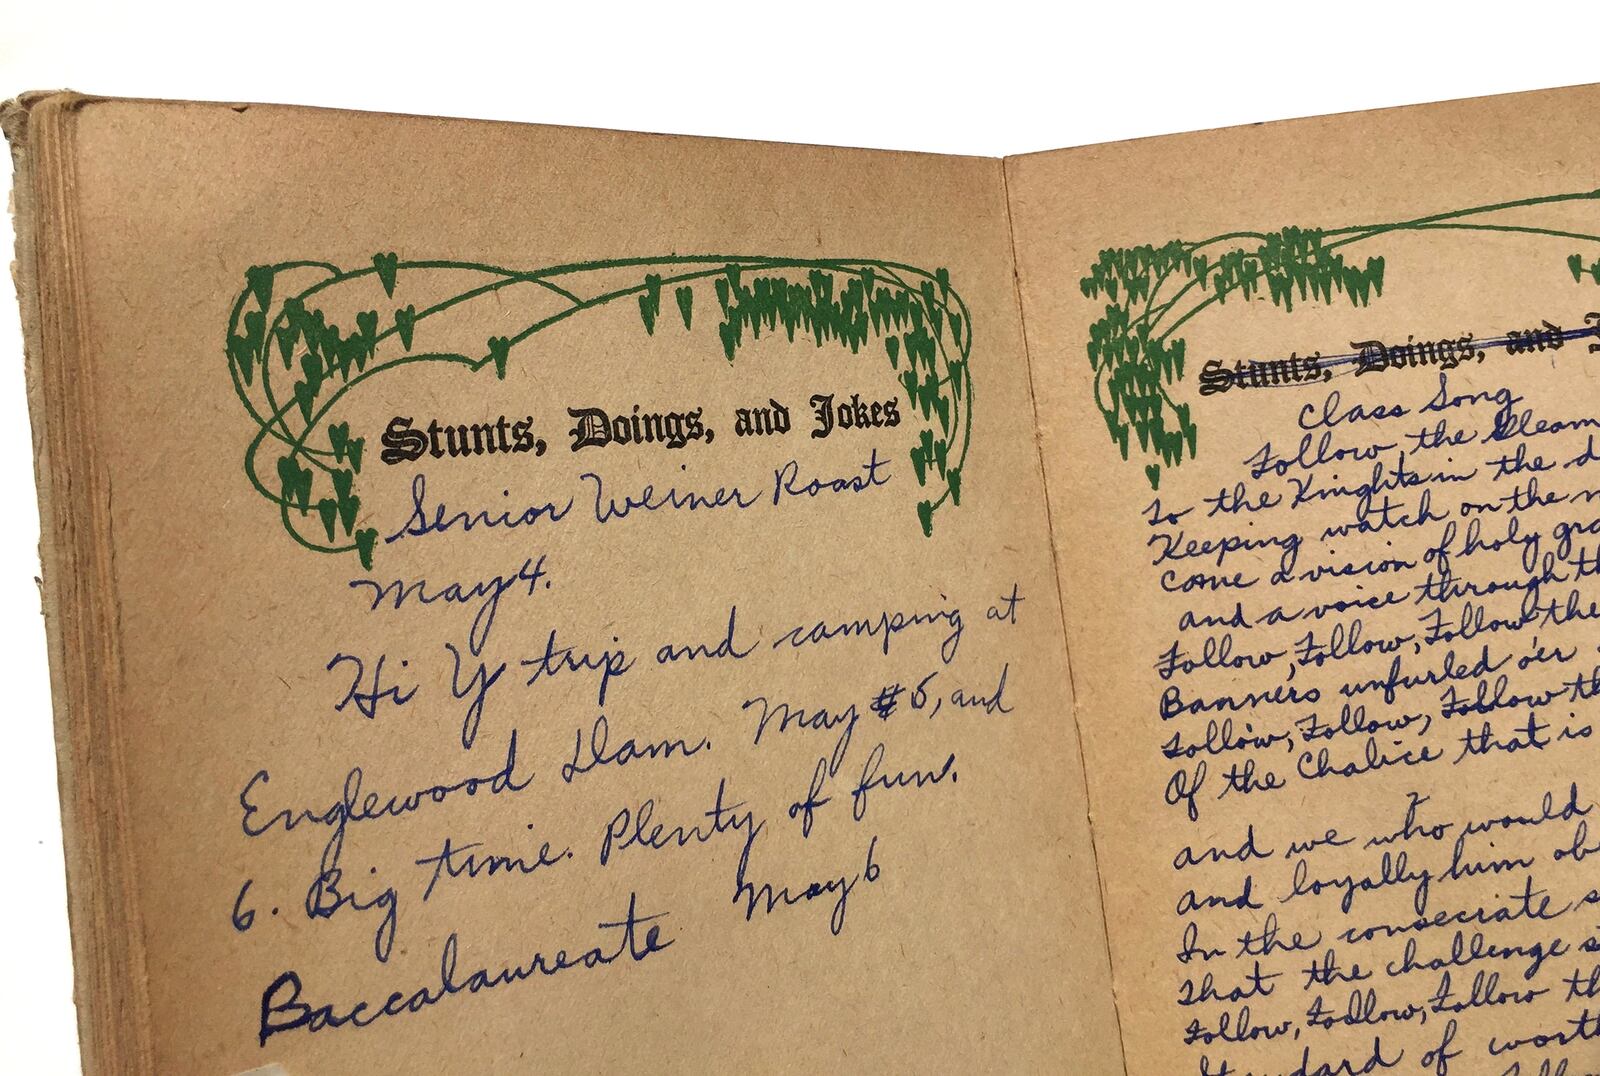 Stunts, Doings, and Jokes
Senior Weiner Roast
May 4.
Hi Y trip and camping at
Englewood Dam. May 5, and
6. Big time. Plenty of fun.
Baccalaureate May 6
Stunts, Doings, and
Class Song
Follow the Gleam
To the Knights in the
Keeping watch on the
Came a vision of holy
and a voice through
Follow, Follow, Follow the
Banners unfurled o'er
Follow, Follow, Follow
Of the Chalice that is
and we who would
and loyally him
In the consecrate
That the challenge
Follow, Follow, Follow
Standard of